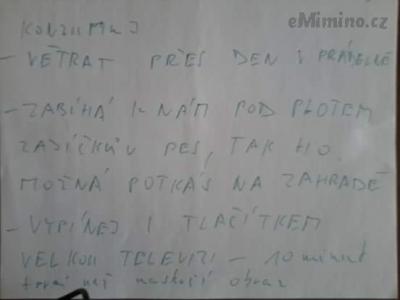 eMimino.cz
KONZUMUJ
- VĚTRAT PŘES DEN I PRÁDELNĚ
- ZABÍHÁ K NÁM POD PLOTEM
ZAJÍČKŮV PES, TAK HO
MOŽNÁ POTKÁŠ NA ZAHRADĚ
- VYPÍNEJ I TLAČÍTKEM
VELKOU TELEVIZI - 10 minut
trvá než naskočí obraz